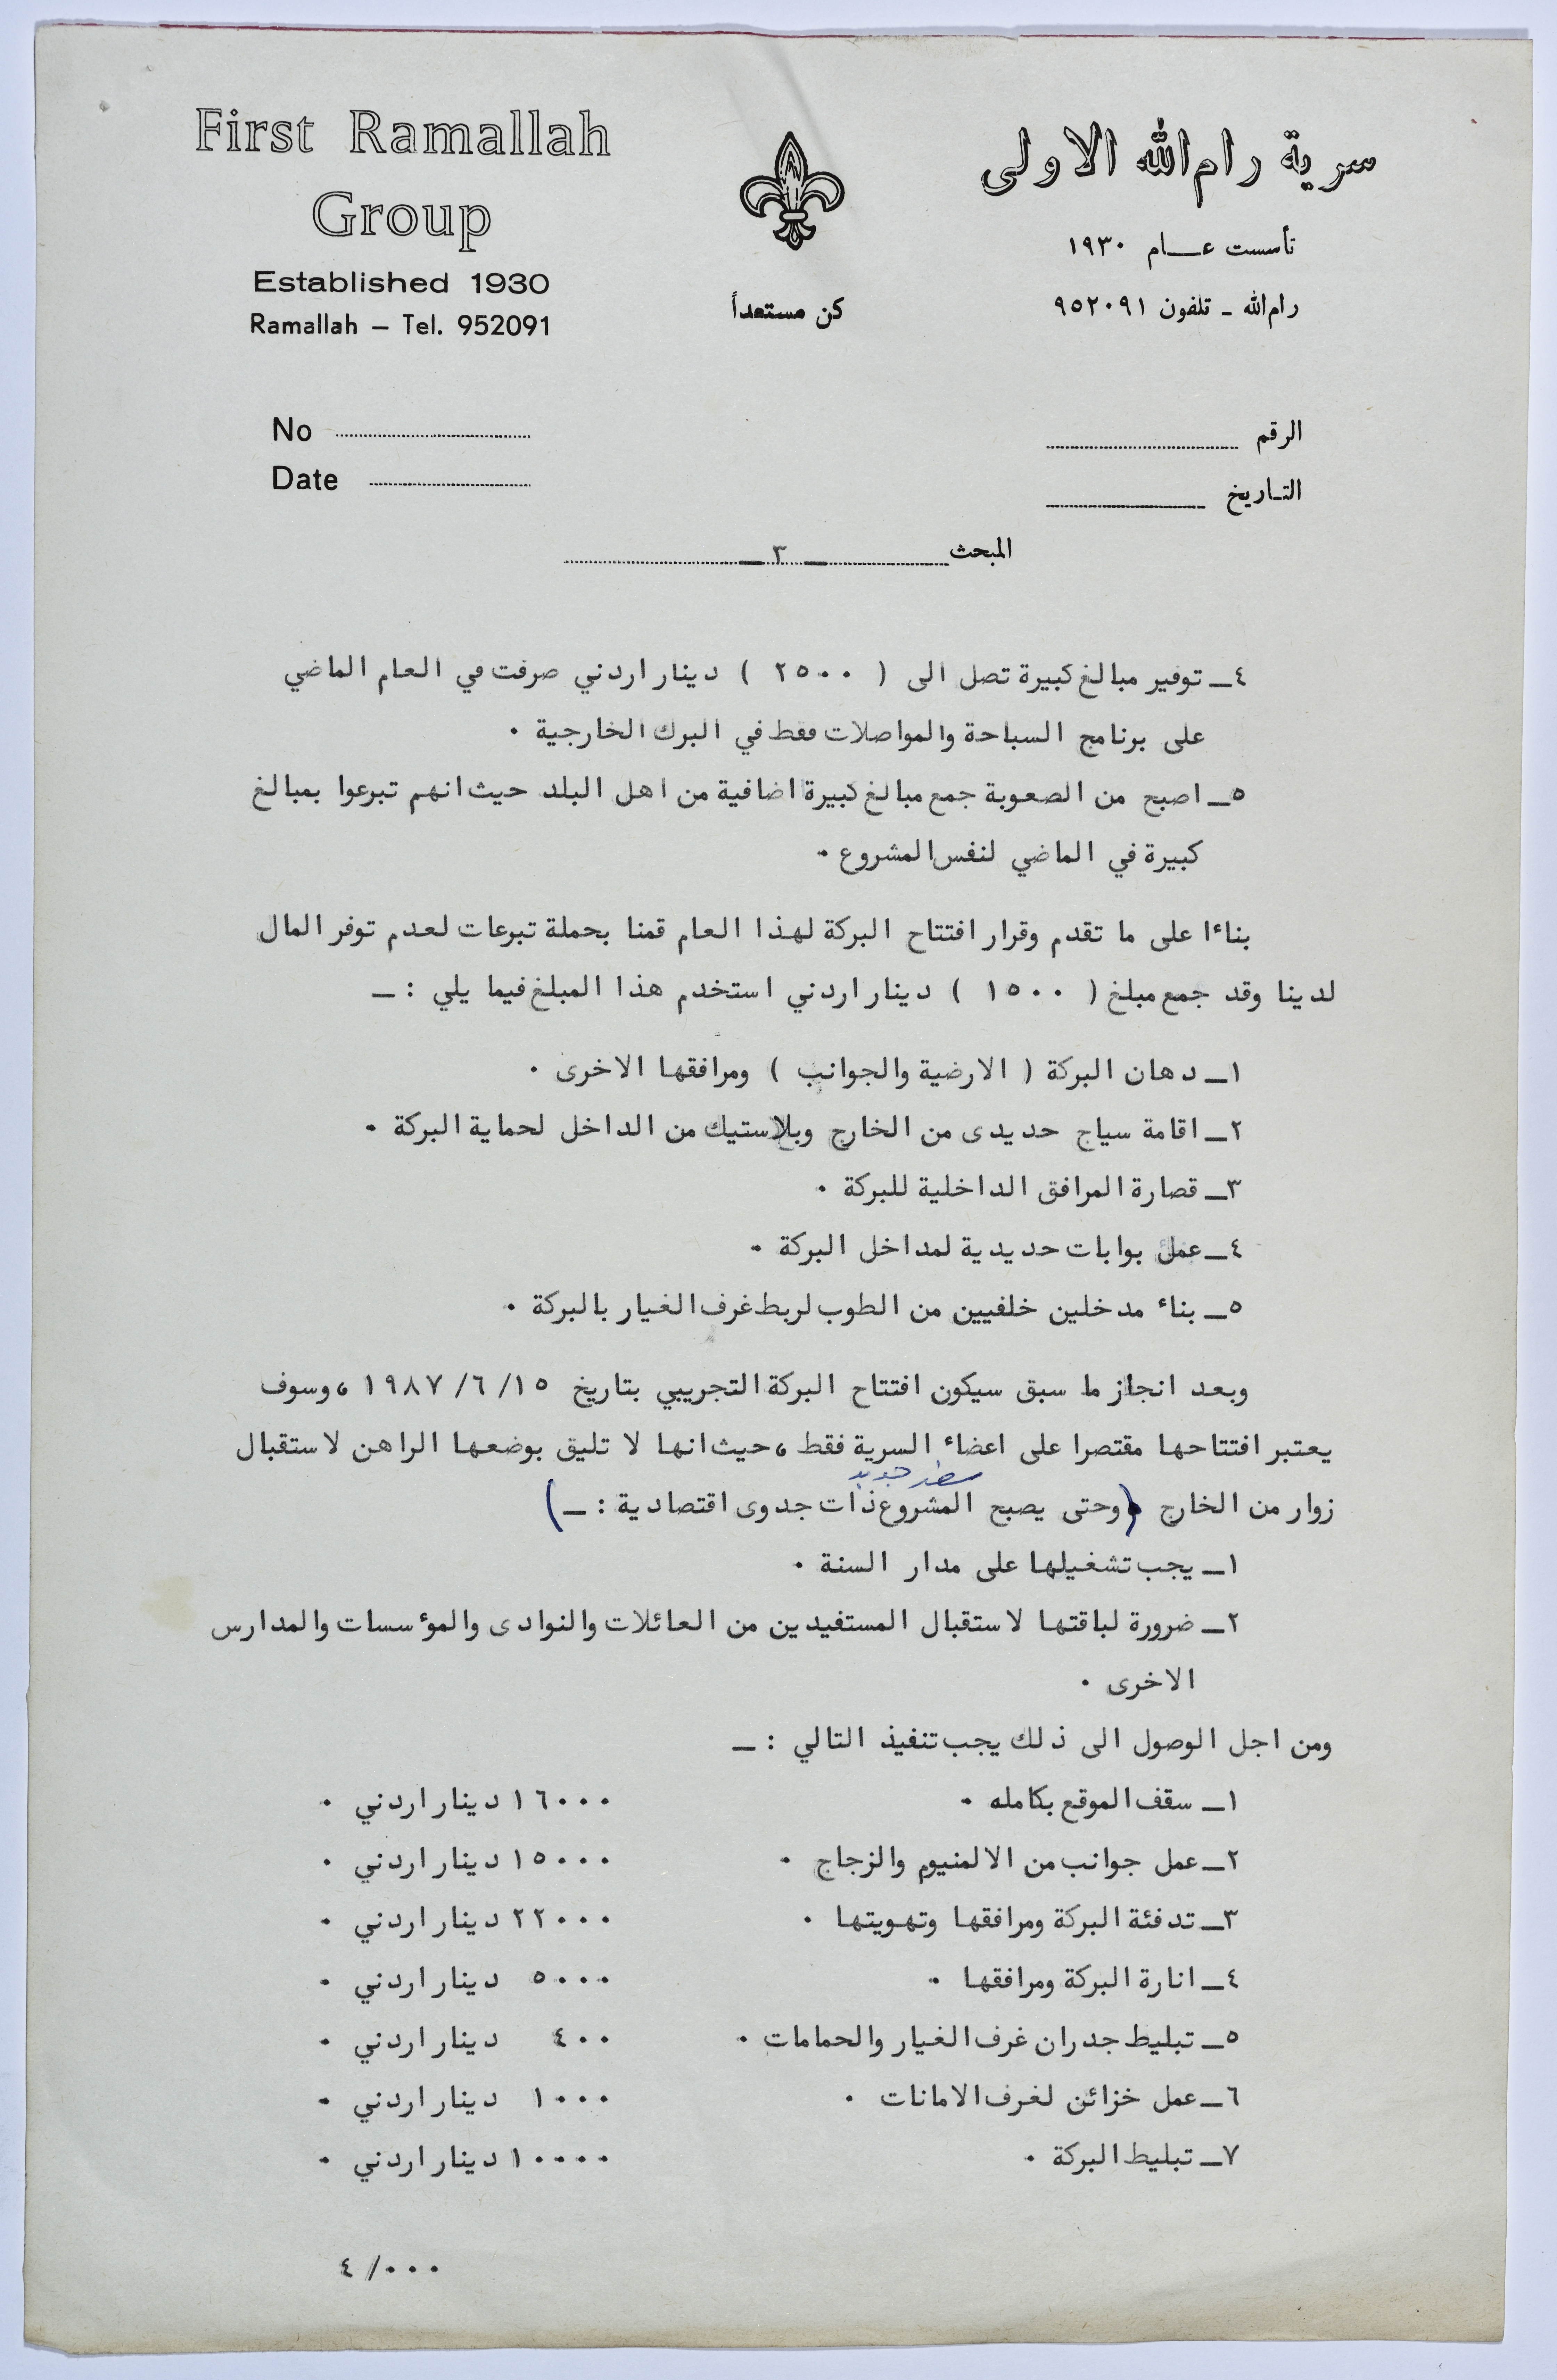 First Ramallah
Group
Established 1930
Ramallah – Tel. 952091
كن مستعداً
سرية رام الله الاولى
تأسست عــام ١٩٣٠
رام الله ـ تلفون ٩٥٢٠٩١
No
Date
الرقم
التاريخ
المبحث ـ ٣ ـ
٤ـ توفير مبالغ كبيرة تصل الى ( ٢٥٠٠ ) دينار اردني صرفت في العام الماضي
على برنامج السباحة والمواصلات فقط في البرك الخارجية ٠
٥ـ اصبح من الصعوبة جمع مبالغ كبيرة اضافية من اهل البلد حيث انهم تبرعوا بمبالغ
كبيرة في الماضي لنفس المشروع ٠
بناءا على ما تقدم وقرار افتتاح البركة لهذا العام قمنا بحملة تبرعات لعدم توفر المال
لدينا وقد جمع مبلغ ( ١٥٠٠ ) دينار اردني استخدم هذا المبلغ فيما يلي : ـ
١ـ دهان البركة ( الارضية والجوانب ) ومرافقها الاخرى ٠
٢ـ اقامة سياج حديدى من الخارج وبلاستيك من الداخل لحماية البركة ٠
٣ـ قصارة المرافق الداخلية للبركة ٠
٤ـ عمل بوابات حديدية لمداخل البركة ٠
٥ـ بناء مدخلين خلفيين من الطوب لربط غرف الغيار بالبركة ٠
وبعد انجاز ما سبق سيكون افتتاح البركة التجريبي بتاريخ ١٥/ ٦/ ١٩٨٧ ، وسوف
يعتبر افتتاحها مقتصرا على اعضاء السرية فقط ، حيث انها لا تليق بوضعها الراهن لاستقبال
سطر جديد
زوار من الخارج ( وحتى يصبح المشروع ذات جدوى اقتصادية : ـ )
١ـ يجب تشغيلها على مدار السنة ٠
٢ـ ضرورة لباقتها لاستقبال المستفيدين من العائلات والنوادى والمؤسسات والمدارس
الاخرى ٠
ومن اجل الوصول الى ذلك يجب تنفيذ التالي : ـ
١ـ سقف الموقع بكامله ٠ ١٦٠٠٠ دينار اردني ٠
٢ـ عمل جوانب من الالمنيوم والزجاج ٠ ١٥٠٠٠ دينار اردني ٠
٣ـ تدفئة البركة ومرافقها وتهويتها ٠ ٢٢٠٠٠ دينار اردني ٠
٤ـ انارة البركة ومرافقها ٠ ٥٠٠٠ دينار اردني ٠
٥ـ تبليط جدران غرف الغيار والحمامات ٠ ٤٠٠ دينار اردني ٠
٦ـ عمل خزائن لغرف الامانات ٠ ١٠٠٠ دينار اردني ٠
٧ـ تبليط البركة ٠ ١٠٠٠٠ دينار اردني ٠
٠٠٠/ ٤